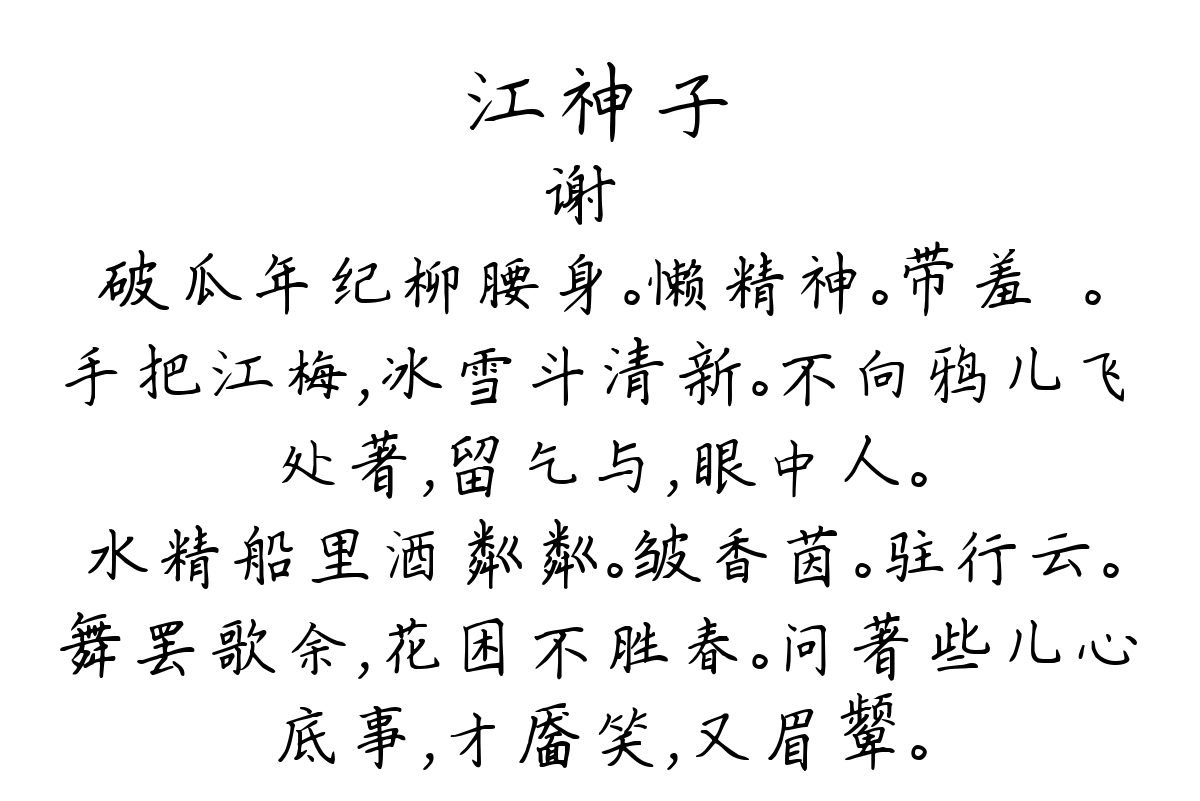 江神子
谢
破瓜年纪柳腰身。懒精神。带羞 。
手把江梅,冰雪斗清新。不向鸦儿飞
处著,留乞与,眼中人。
水精船里酒粼粼。皱香茵。驻行云。
舞罢歌余,花困不胜春。问著些儿心
底事,才靥笑,又眉颦。